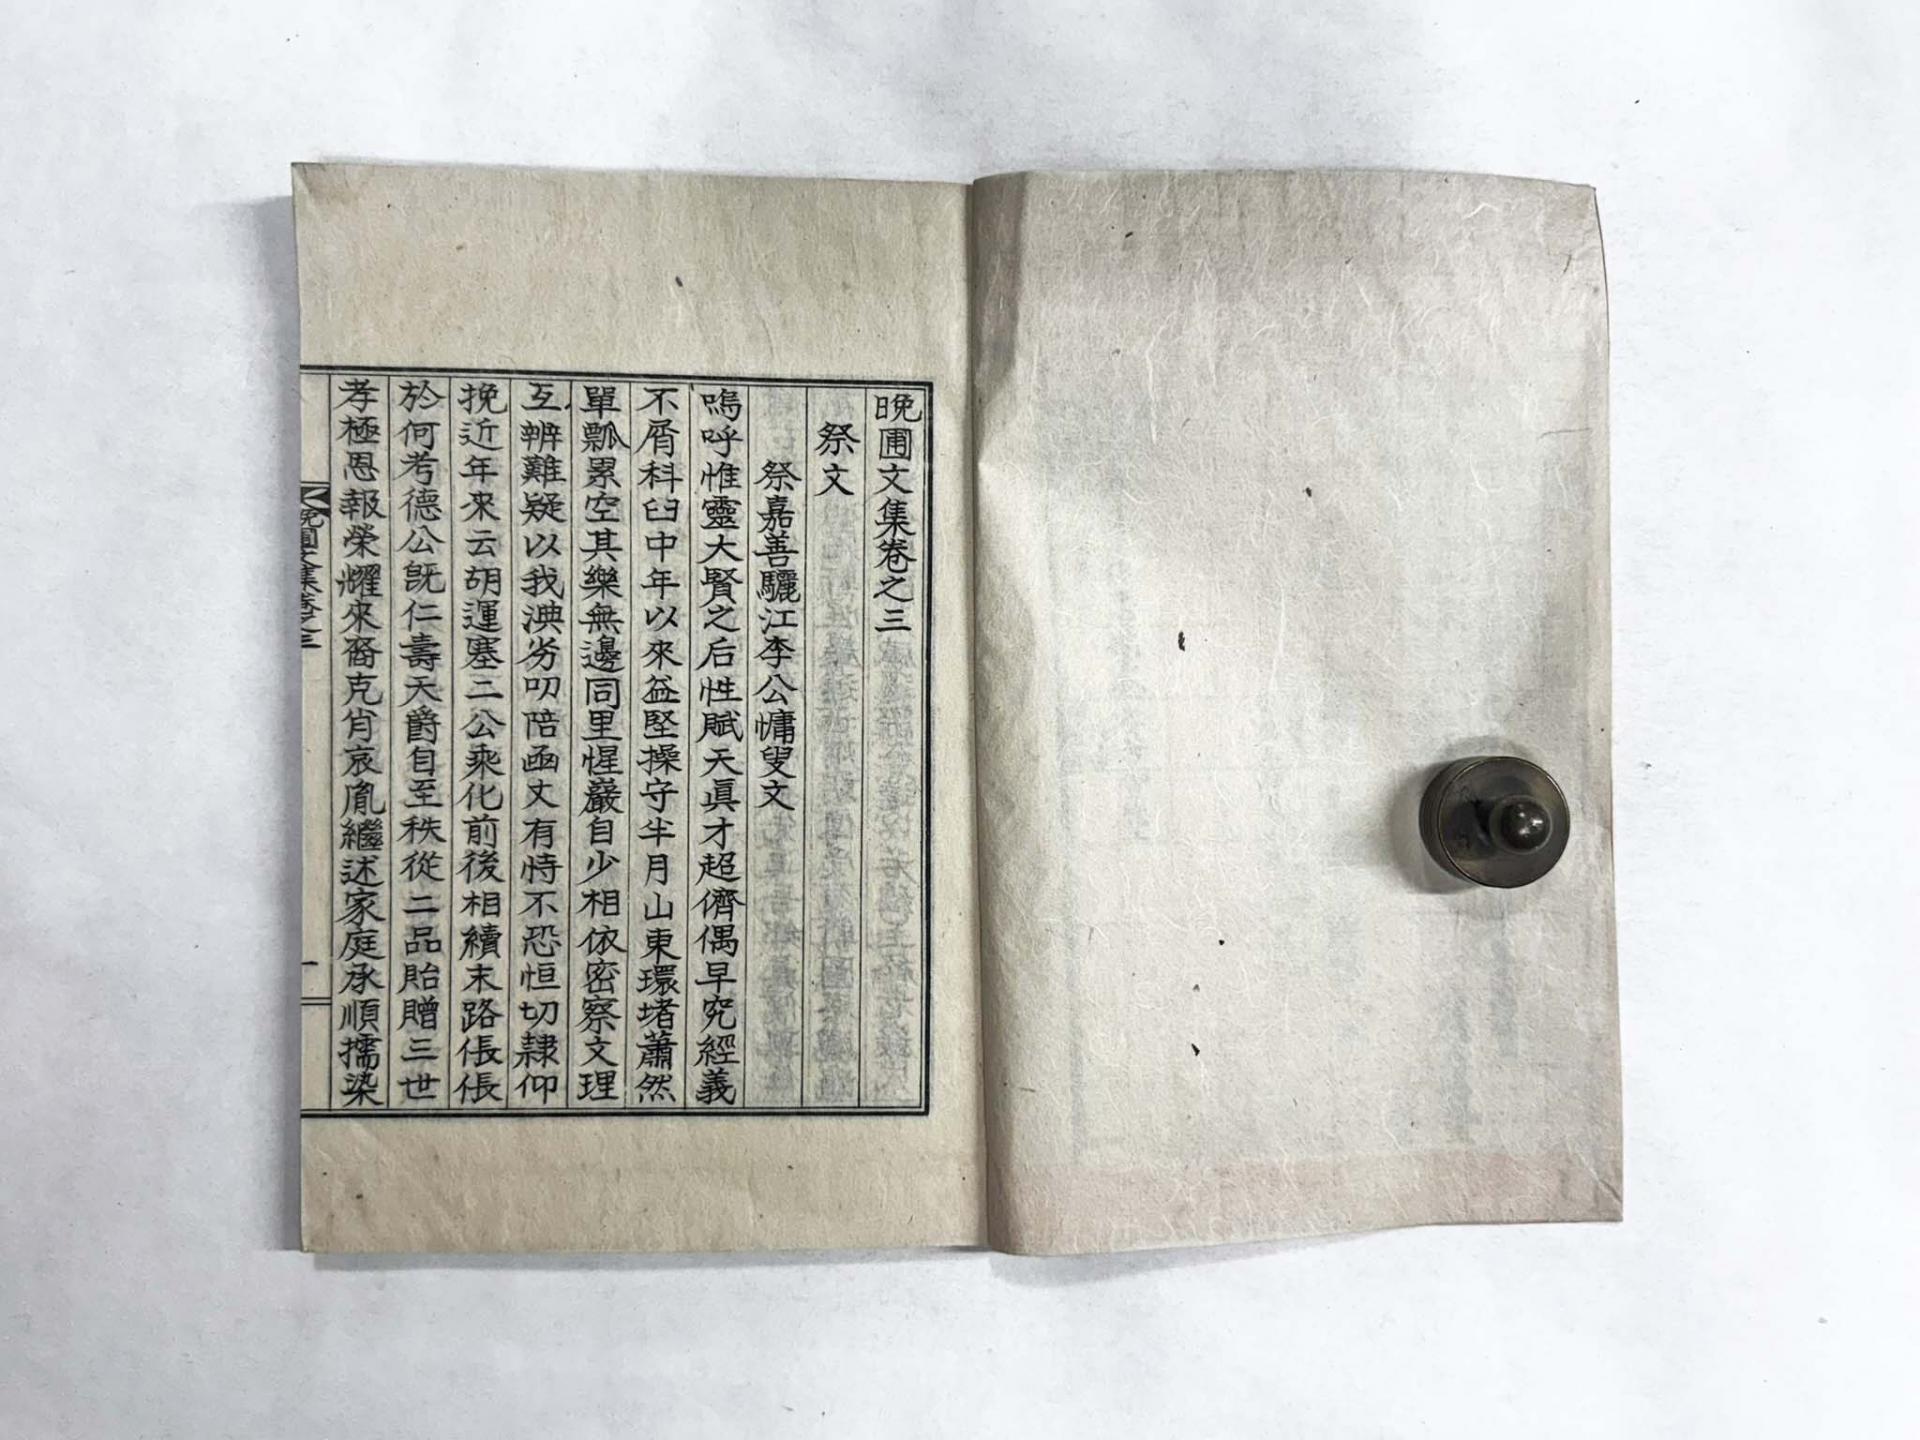 晩圃文集卷之三
祭文
祭嘉善驪江李公慵叟文
嗚呼惟靈大賢之后性賦天眞才超儕偶早究經義
不屑科臼中年以來益堅操守半月山東環堵蕭然
單瓢累空其樂無邊同里惺巖自少相依密察文理
互辨難疑以我淟劣叨陪函丈有恃不恐恒切隷仰
挽近年來云胡運塞二公乘化前後相續末路倀倀
於何考德公旣仁壽天爵自至秩從二品貽贈三世
孝極恩報榮耀來裔克肖哀胤繼述家庭承順擩染
晩圃文集卷之三
一